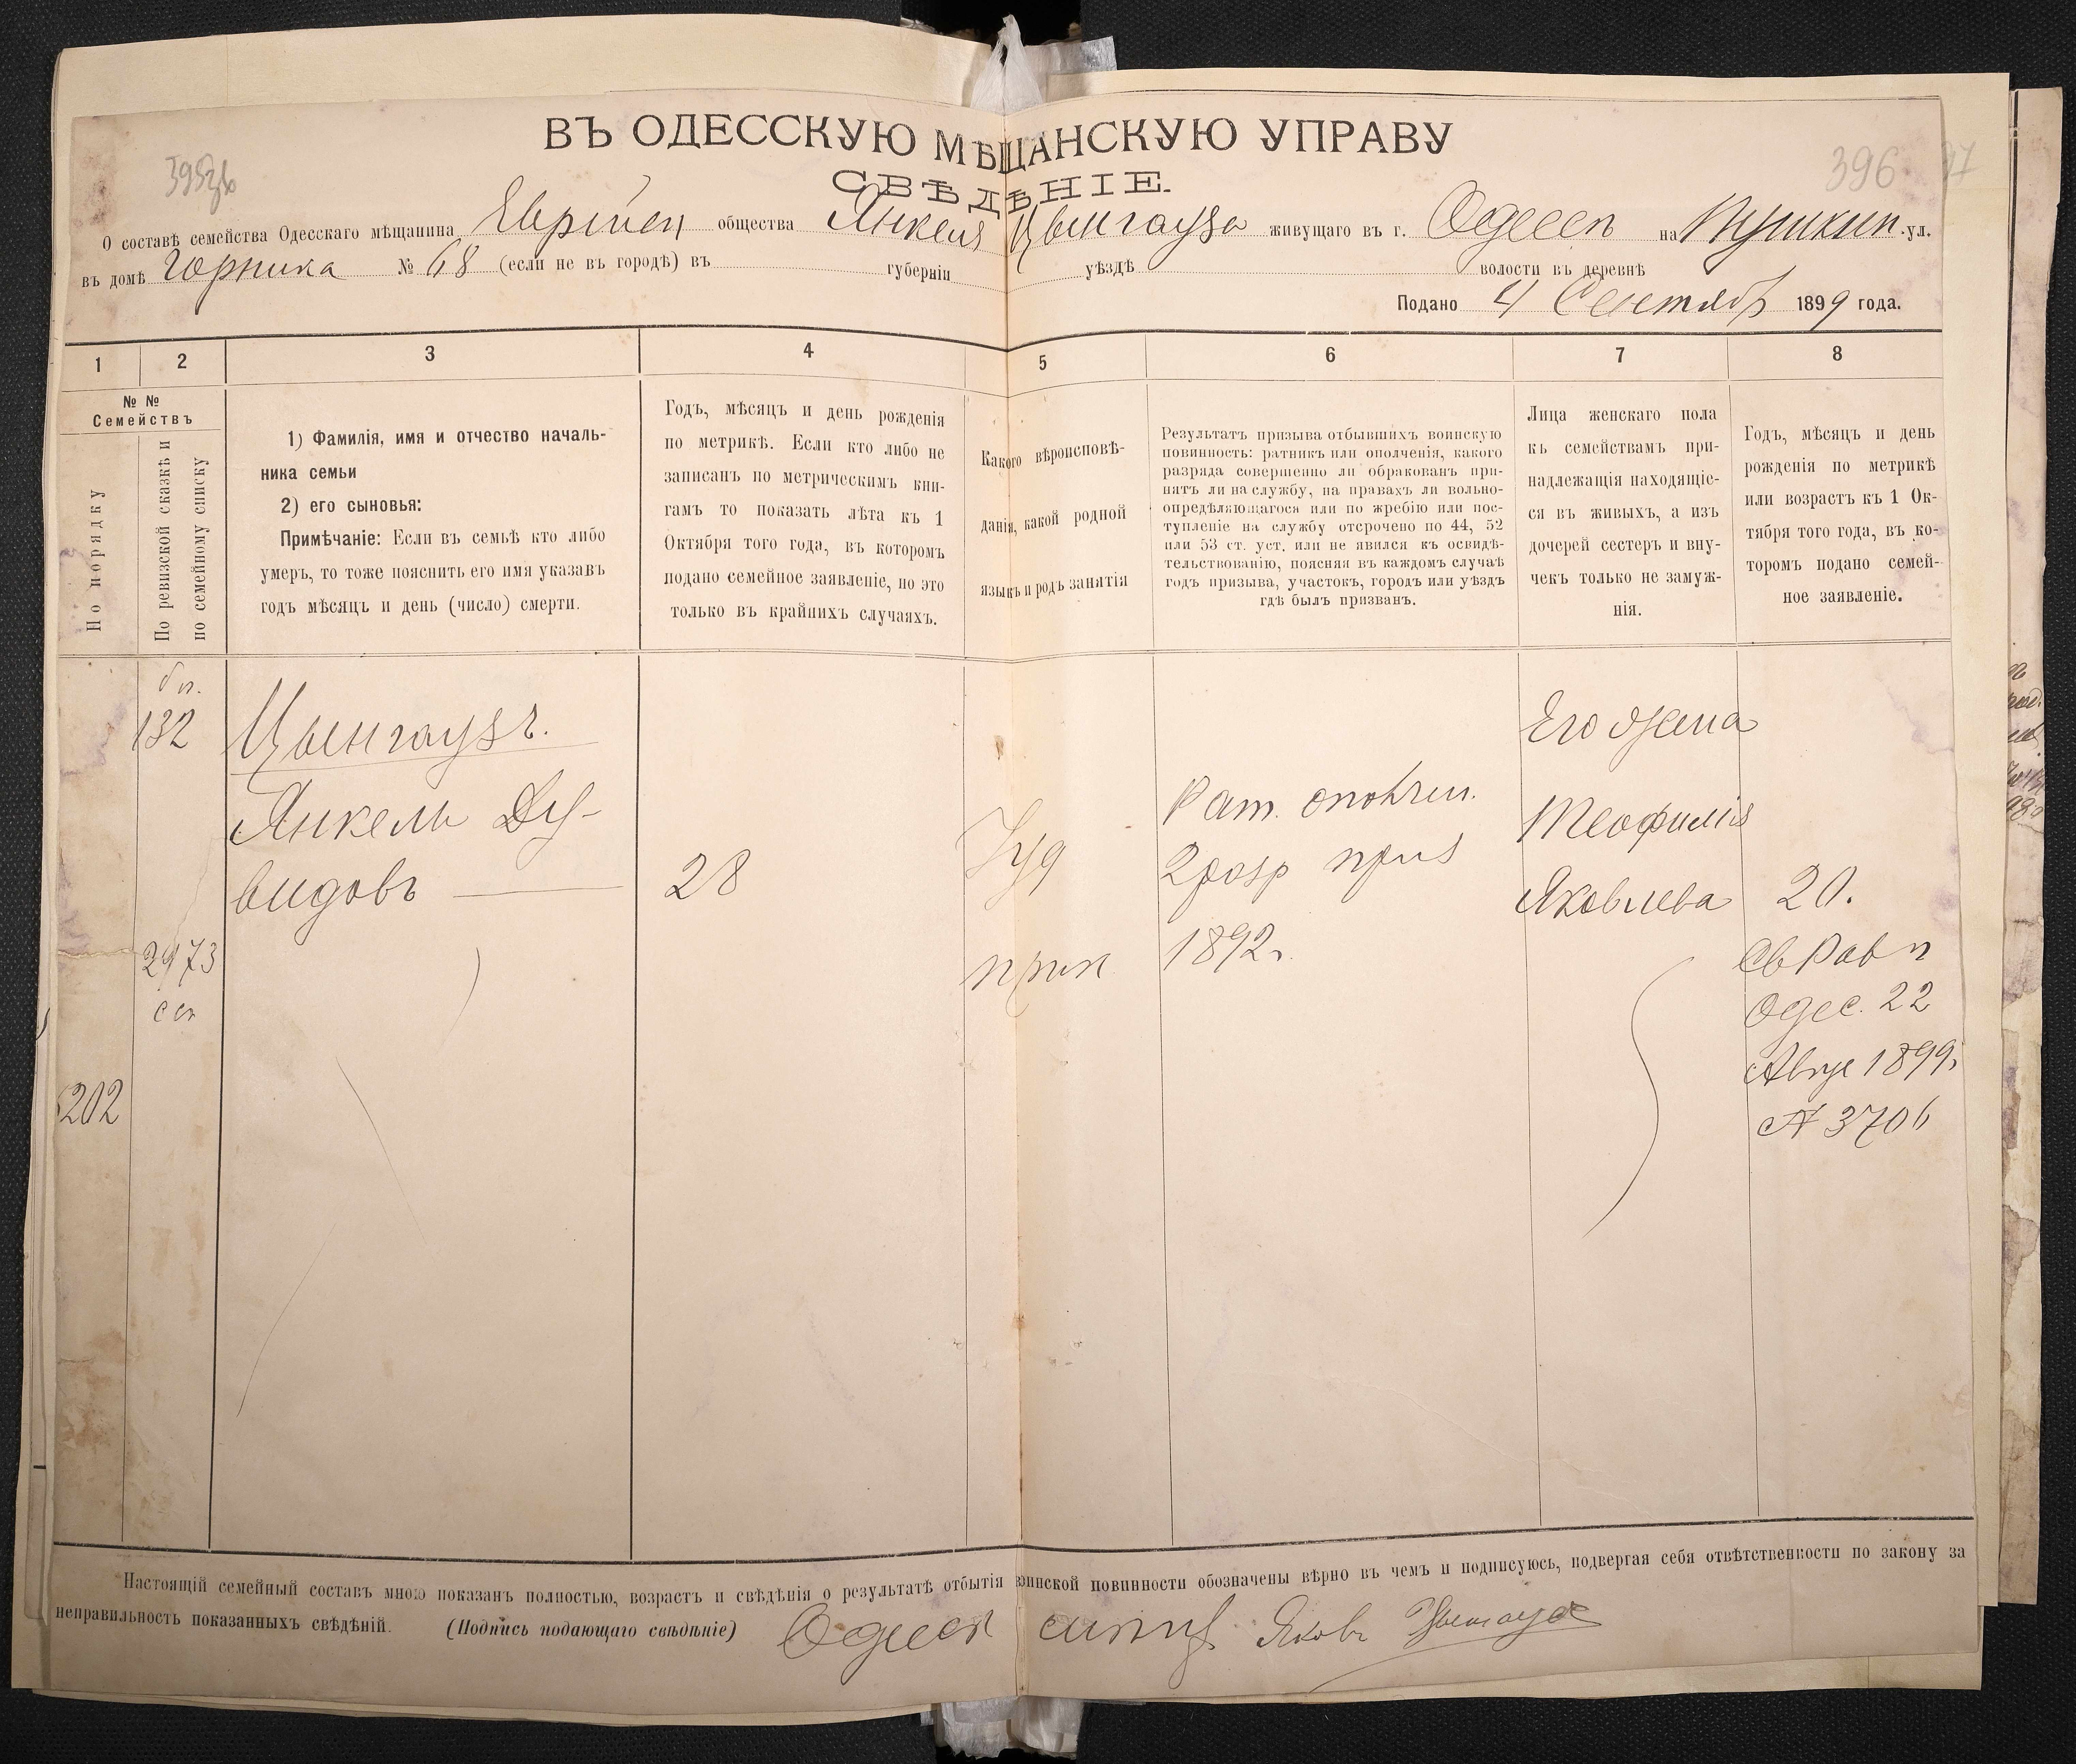 ВЪ ОДЕССКУЮ МѢЩАНСКУЮ УПРАВУ
СВѢДѢНІЕ.
396
О составѣ семейства Одесскаго мѣщанина Еврейск общества Янкеля Цынгауза живущаго въ г. Одессѣ на Пушкин. ул.
въ домѣ Горника № 68 (если не въ городѣ) въ губерніи уѣздѣ волости въ деревнѣ
Подано 4 Сентябр 1899 года.
1 2 3 4 5 6 7 8
№ №
Семействъ
По порядку
По ревизской сказкѣ и
по семейному списку
1) Фамилія, имя и отчество началь-
ника семьи
2) его сыновья:
Примѣчаніе: Если въ семьѣ кто либо
умеръ, то тоже пояснить его имя указавъ
годъ мѣсяцъ и день (число) смерти.
Годъ, мѣсяцъ и день рожденія
по метрикѣ. Если кто либо не
записанъ по метрическимъ кни-
гамъ то показать лѣта къ 1
Октября того года, въ которомъ
подано семейное заявленіе, но это
только въ крайнихъ случаяхъ.
Какого вѣроисповѣ-
данія, какой родной
языкъ и родъ занятія
Результатъ призыва отбывшихъ воинскую
повинность: ратникъ или ополченія, какого
разряда совершенно ли обракованъ при-
нятъ ли на службу, на правахъ ли вольно-
опредѣляющагося или по жребію или пос-
тупленіе на службу отсрочено по 44, 52
или 53 ст. уст. или не явился къ освидѣ-
тельствованію, поясняя въ каждомъ случаѣ
годъ призыва, участокъ, городъ или уѣздъ
гдѣ былъ призванъ.
Лица женскаго пола
къ семействамъ при-
надлежащія находящіе-
ся въ живыхъ, а изъ
дочерей сестеръ и вну-
чекъ только не замуж-
нія.
Годъ, мѣсяцъ и день
рожденія по метрикѣ
или возрастъ къ 1 Ок-
тября того года, въ ко-
торомъ подано семей-
ное заявленіе.
132
2973
202
Цынгаузъ.
Янкель Ду-
видовъ
28
Іуд
прик
Рат. ополчен.
2 разр приз
1892г.
Его жена
Теофилія
Яковлева
20.
Св Рав
Одес. 22
Авгус 1899г
№ 3706
Настоящій семейный составъ мною показанъ полностью, возрастъ и свѣдѣнія о результатѣ отбытія воинской повинности обозначены вѣрно въ чемъ и подписуюсь, подвергая себя отвѣтственности по закону за
неправильность показанныхъ свѣдѣній. (Подпись подающаго свѣдѣніе) Одесск Яковъ Цынгаузъ